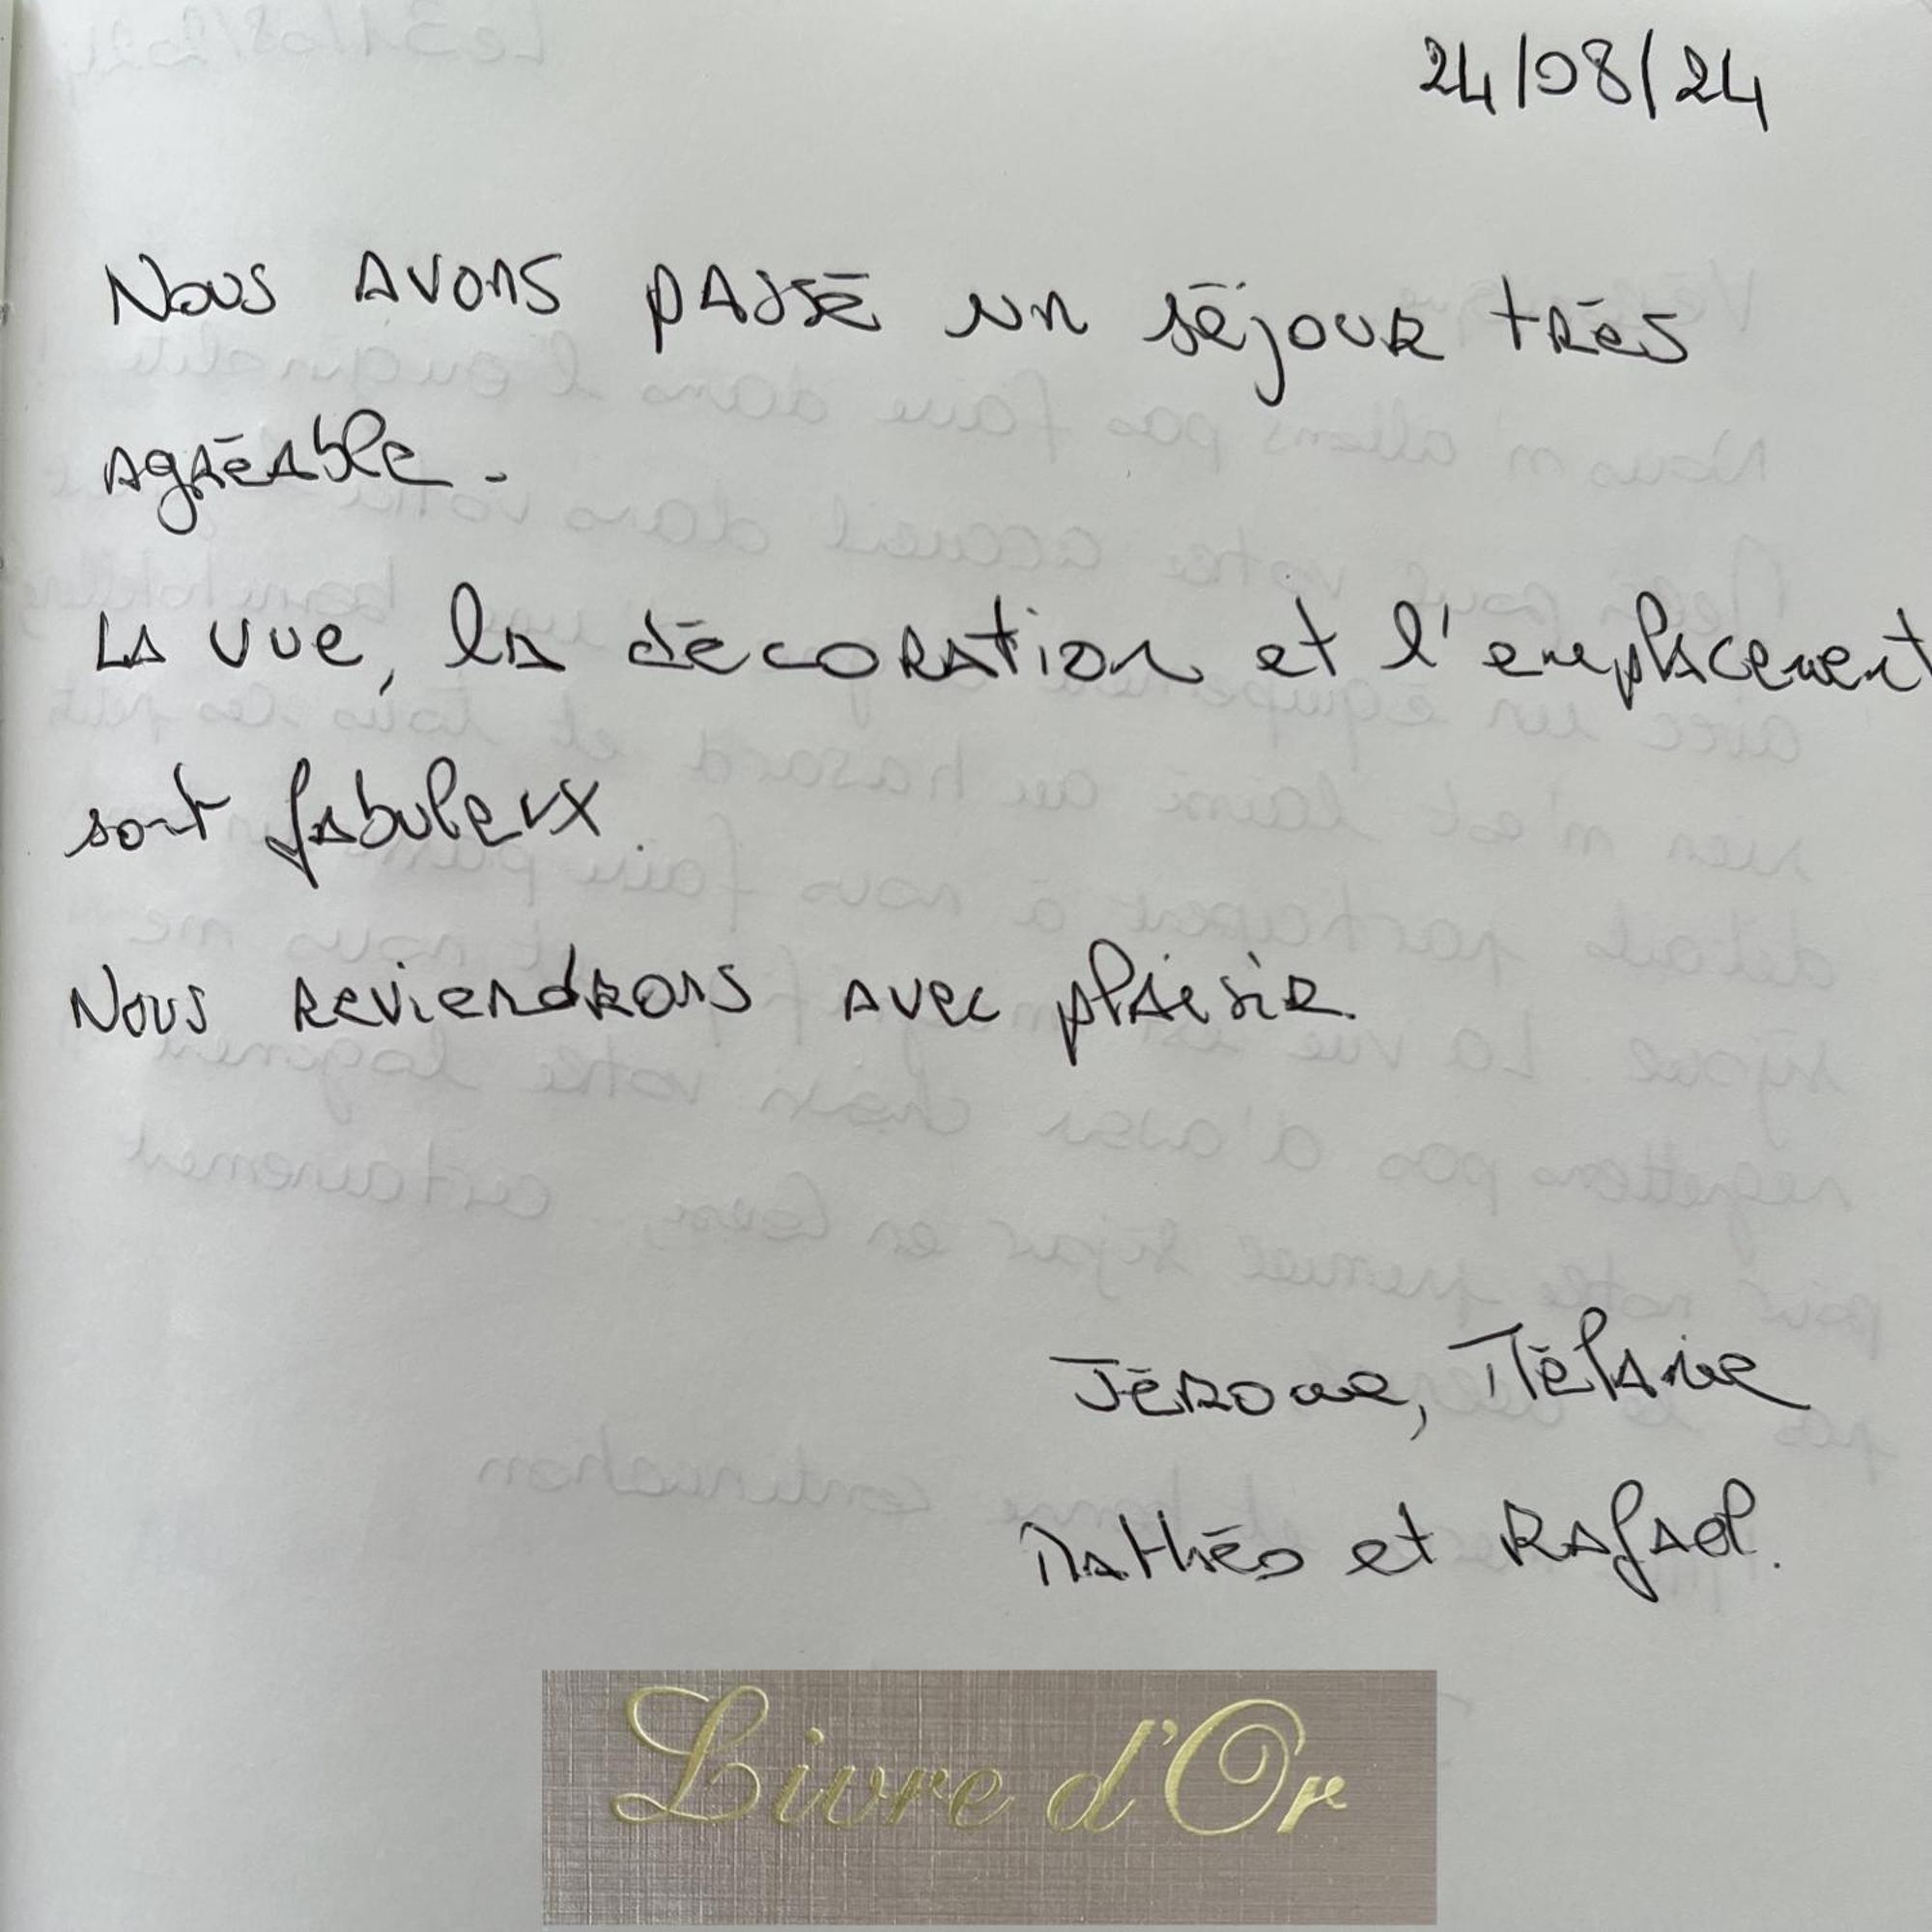 24/08/24
Nous avons passé un séjour très
agréable.
La vue, la décoration et l'emplacement
sont fabuleux.
Nous reviendrons avec plaisir.
Jérome, Mélanie
Mathéo et Rafael.
Livre d'Or